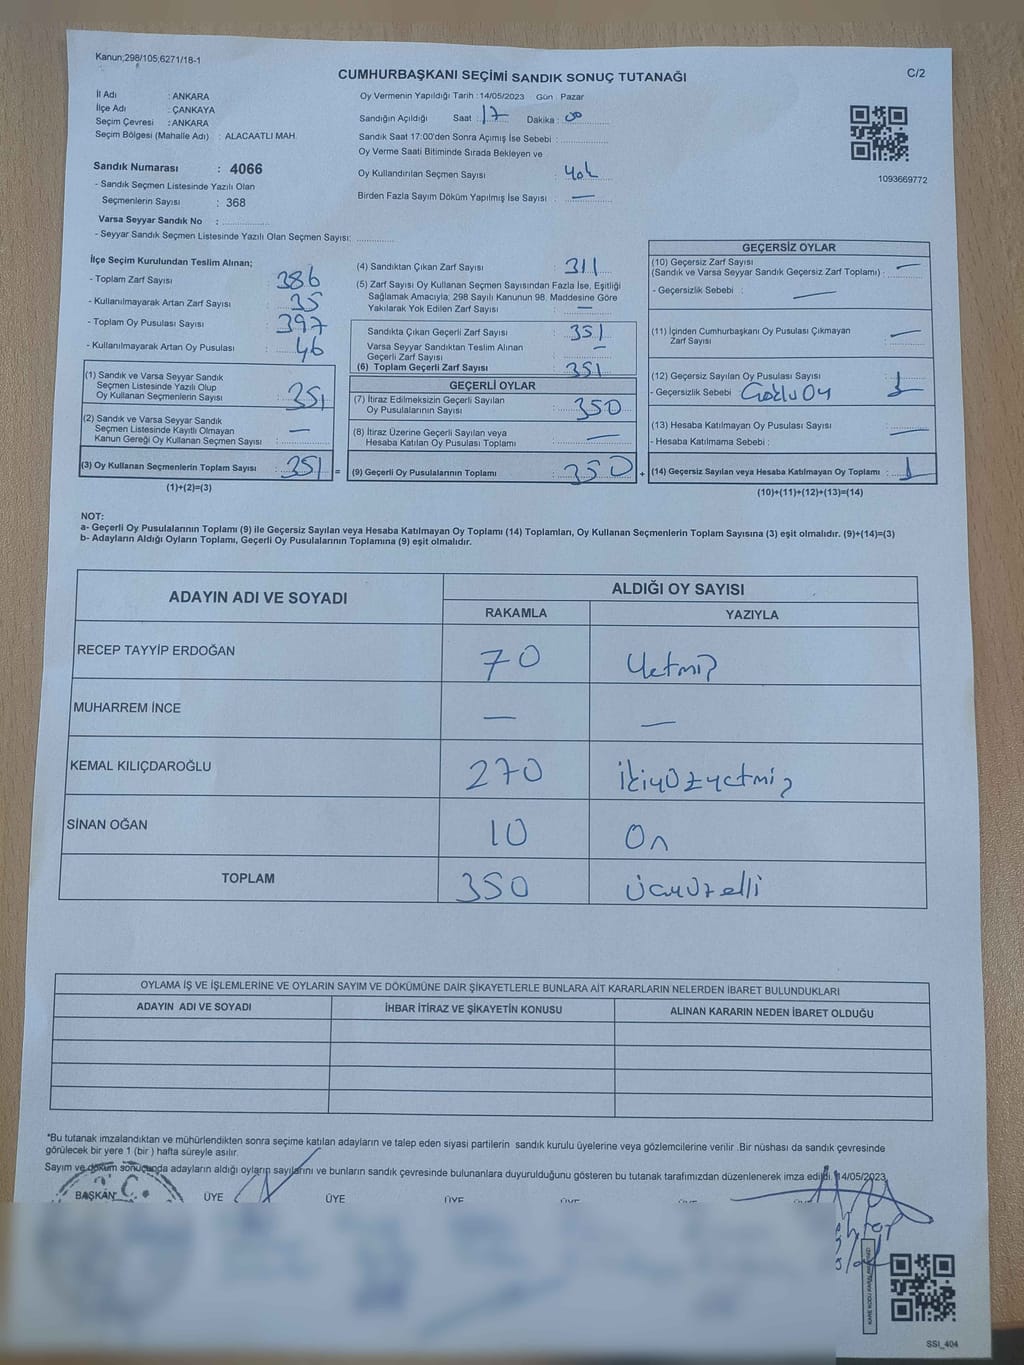 Kanun;298/105;6271/18-1
CUMHURBAŞKANI SEÇİMİ SANDIK SONUÇ TUTANAĞI
C/2
İl Adı : ANKARA
İlçe Adı : ÇANKAYA
Seçim Çevresi : ANKARA
Seçim Bölgesi (Mahalle Adı) : ALACAATLI MAH.
Sandık Numarası : 4066
- Sandık Seçmen Listesinde Yazılı Olan
Seçmenlerin Sayısı : 368
Varsa Seyyar Sandık No :
- Seyyar Sandık Seçmen Listesinde Yazılı Olan Seçmen Sayısı:
Oy Vermenin Yapıldığı Tarih : 14/05/2023 Gün : Pazar
Sandığın Açıldığı Saat : 17 Dakika : 00
Sandık Saat 17:00'den Sonra Açımış İse Sebebi :
Oy Verme Saati Bitiminde Sırada Bekleyen ve
Oy Kullandırılan Seçmen Sayısı : Yok
Birden Fazla Sayım Döküm Yapılmış İse Sayısı : —
1093669772
İlçe Seçim Kurulundan Teslim Alınan;
- Toplam Zarf Sayısı : 386
- Kullanılmayarak Artan Zarf Sayısı : 35
- Toplam Oy Pusulası Sayısı : 397
- Kullanılmayarak Artan Oy Pusulası : 46
(1) Sandık ve Varsa Seyyar Sandık
Seçmen Listesinde Yazılı Olup
Oy Kullanan Seçmenlerin Sayısı : 351
(2) Sandık ve Varsa Seyyar Sandık
Seçmen Listesinde Kayıtlı Olmayan
Kanun Gereği Oy Kullanan Seçmen Sayısı : —
(3) Oy Kullanan Seçmenlerin Toplam Sayısı : 351 =
(1)+(2)=(3)
(4) Sandıktan Çıkan Zarf Sayısı : 311
(5) Zarf Sayısı Oy Kullanan Seçmen Sayısından Fazla İse, Eşitliği
Sağlamak Amacıyla; 298 Sayılı Kanunun 98. Maddesine Göre
Yakılarak Yok Edilen Zarf Sayısı : —
Sandıkta Çıkan Geçerli Zarf Sayısı : 351
Varsa Seyyar Sandıktan Teslim Alınan
Geçerli Zarf Sayısı : —
(6) Toplam Geçerli Zarf Sayısı : 351
GEÇERLİ OYLAR
(7) İtiraz Edilmeksizin Geçerli Sayılan
Oy Pusulalarının Sayısı : 350
(8) İtiraz Üzerine Geçerli Sayılan veya
Hesaba Katılan Oy Pusulası Toplamı : —
(9) Geçerli Oy Pusulalarının Toplamı : 350 +
GEÇERSİZ OYLAR
(10) Geçersiz Zarf Sayısı
(Sandık ve Varsa Seyyar Sandık Geçersiz Zarf Toplamı) : —
- Geçersizlik Sebebi : —
(11) İçinden Cumhurbaşkanı Oy Pusulası Çıkmayan
Zarf Sayısı : —
(12) Geçersiz Sayılan Oy Pusulası Sayısı : 1
- Geçersizlik Sebebi : Çoklu Oy
(13) Hesaba Katılmayan Oy Pusulası Sayısı : —
- Hesaba Katılmama Sebebi :
(14) Geçersiz Sayılan veya Hesaba Katılmayan Oy Toplamı : 1
(10)+(11)+(12)+(13)=(14)
NOT:
a- Geçerli Oy Pusulalarının Toplamı (9) ile Geçersiz Sayılan veya Hesaba Katılmayan Oy Toplamı (14) Toplamları, Oy Kullanan Seçmenlerin Toplam Sayısına (3) eşit olmalıdır. (9)+(14)=(3)
b- Adayların Aldığı Oyların Toplamı, Geçerli Oy Pusulalarının Toplamına (9) eşit olmalıdır.
ADAYIN ADI VE SOYADI
ALDIĞI OY SAYISI
RAKAMLA YAZIYLA
RECEP TAYYİP ERDOĞAN 70 Yetmiş
MUHARREM İNCE — —
KEMAL KILIÇDAROĞLU 270 ikiyüzyetmiş
SİNAN OĞAN 10 On
TOPLAM 350 üçyüzelli
OYLAMA İŞ VE İŞLEMLERİNE VE OYLARIN SAYIM VE DÖKÜMÜNE DAİR ŞİKAYETLERLE BUNLARA AİT KARARLARIN NELERDEN İBARET BULUNDUKLARI
ADAYIN ADI VE SOYADI İHBAR İTİRAZ VE ŞİKAYETİN KONUSU ALINAN KARARIN NEDEN İBARET OLDUĞU
*Bu tutanak imzalandıktan ve mühürlendikten sonra seçime katılan adayların ve talep eden siyasi partilerin sandık kurulu üyelerine veya gözlemcilerine verilir .Bir nüshası da sandık çevresinde
görülecek bir yere 1 (bir ) hafta süreyle asılır.
Sayım ve döküm sonucunda adayların aldığı oyların sayılarını ve bunların sandık çevresinde bulunanlara duyurulduğunu gösteren bu tutanak tarafımızdan düzenlenerek imza edildi. 14/05/2023
BAŞKAN ÜYE ÜYE ÜYE
T.C.
SSI_404